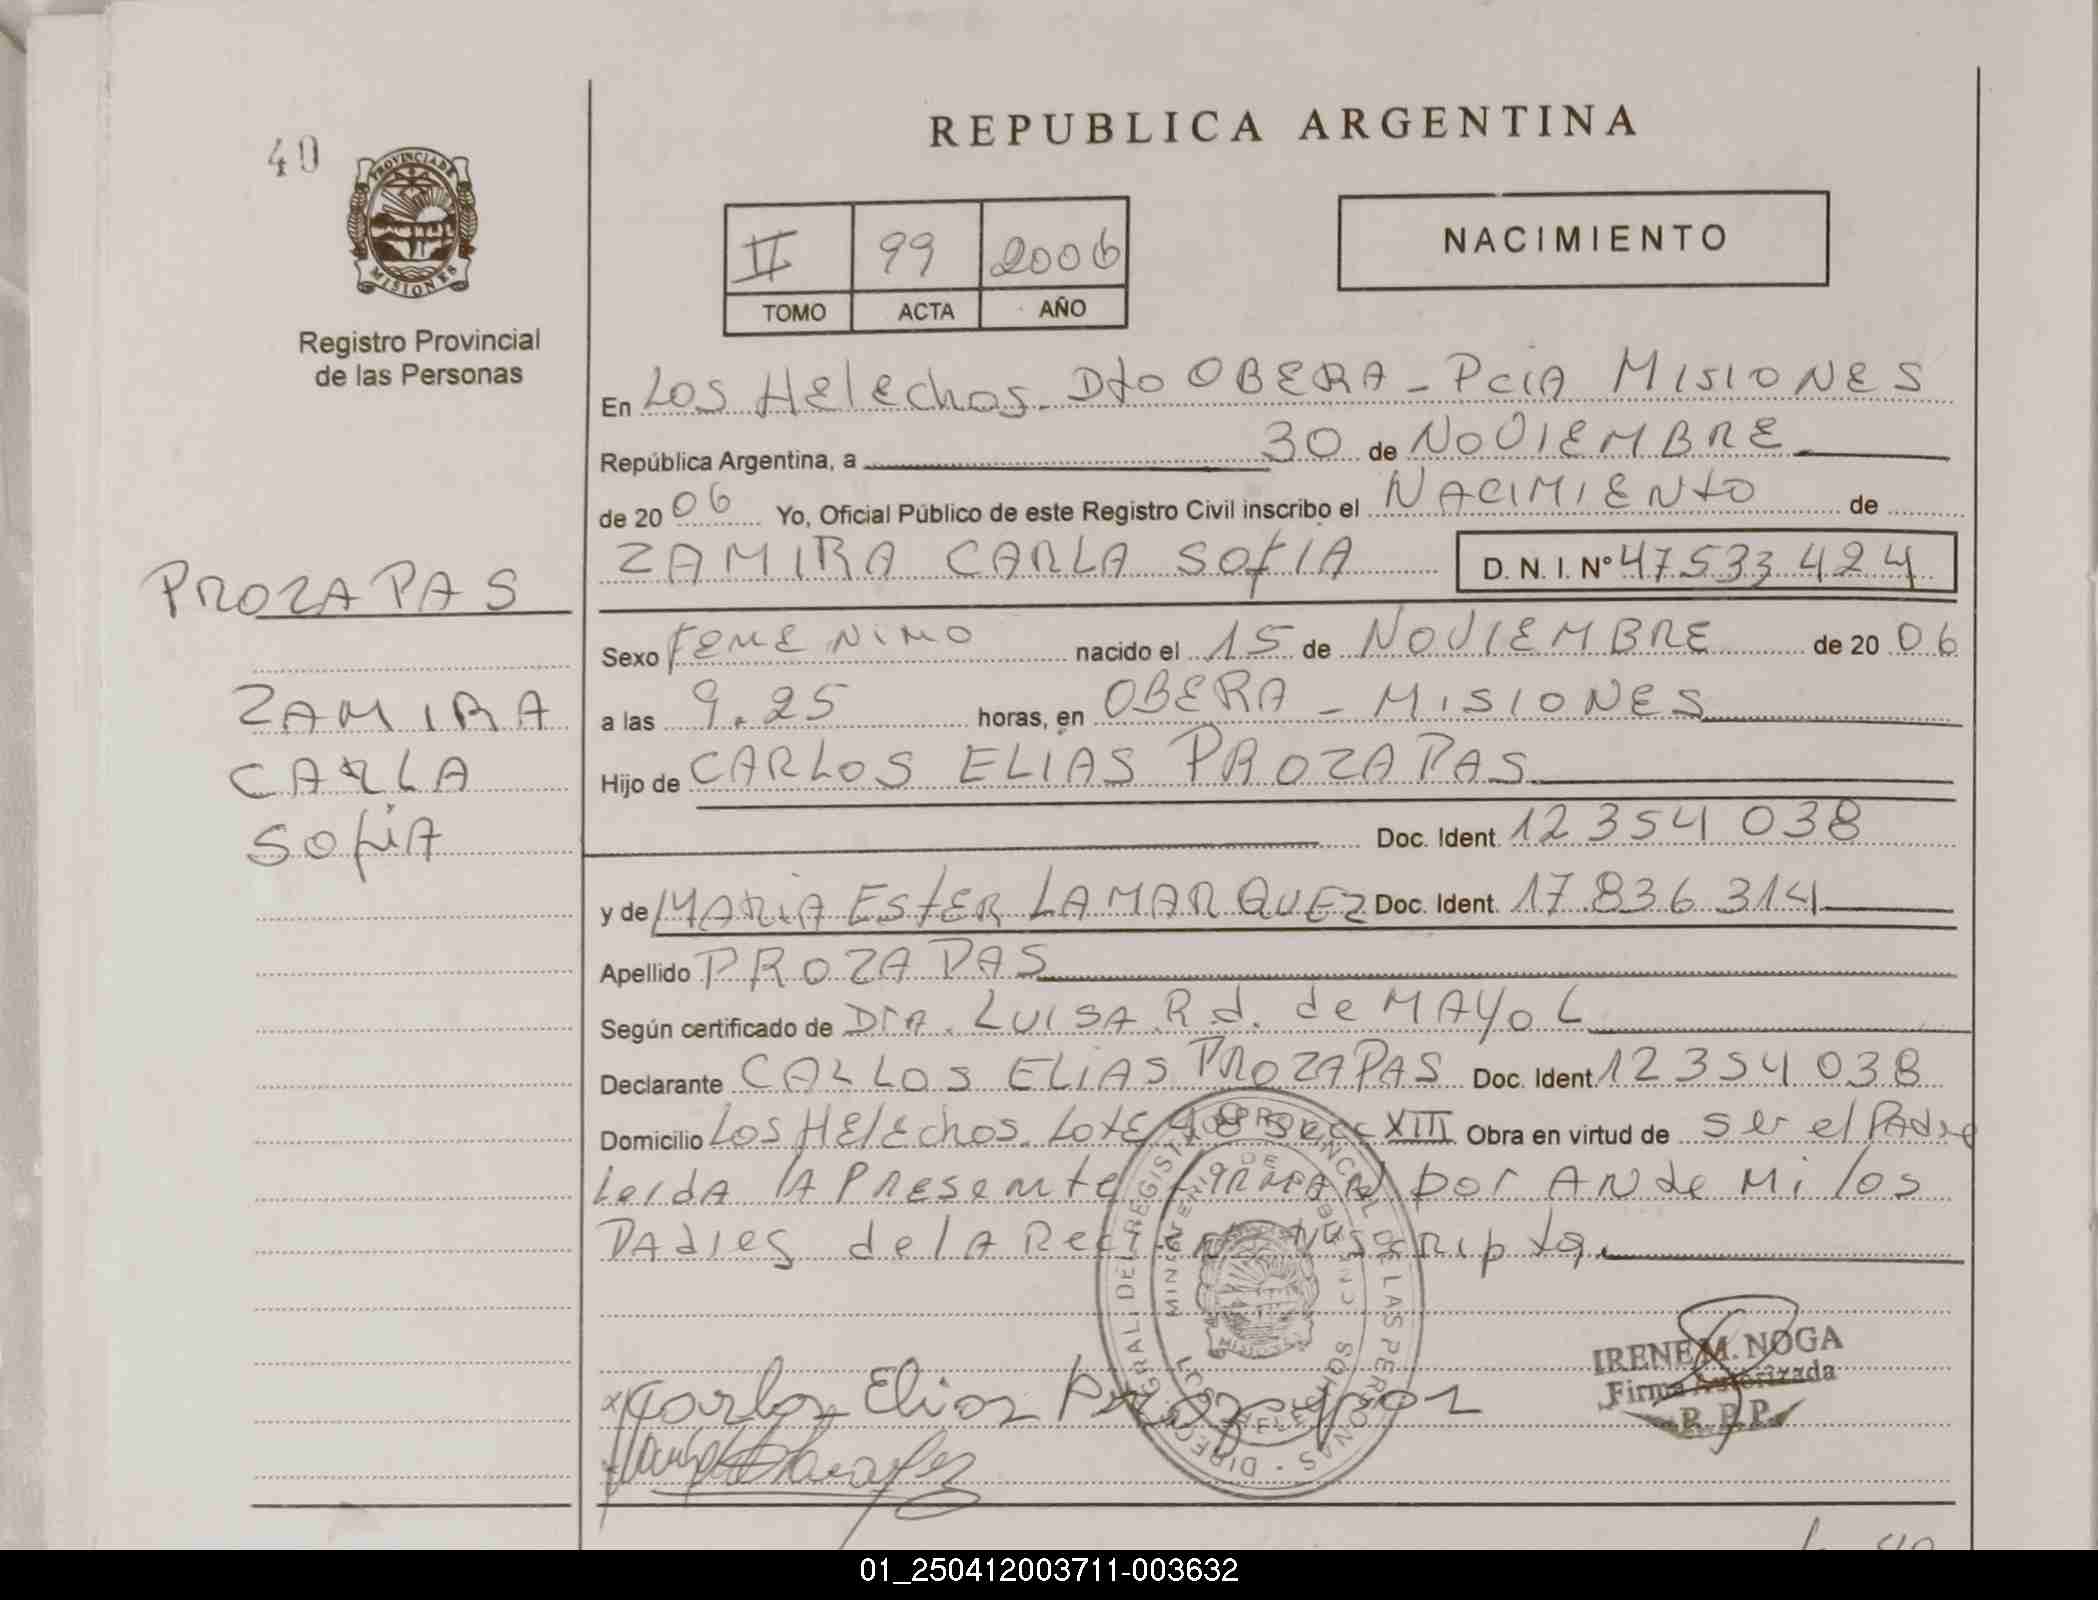 40
PROVINCIA DE
MISIONES
Registro Provincial
de las Personas
PROZAPAS
ZAMIRA
CARLA
Sofia
REPUBLICA ARGENTINA
II 99 2006
TOMO ACTA AÑO
NACIMIENTO
En Los Helechos. Dto OBERA - Pcia MISIONES
República Argentina, a 30 de NOVIEMBRE
de 2006 Yo, Oficial Público de este Registro Civil inscribo el NACIMIENTO de
ZAMIRA CARLA SOFIA D. N. I. Nº 47 533 424
Sexo FEMENINO nacido el 15 de NOVIEMBRE de 2006
a las 9.25 horas, en OBERA - MISIONES
Hijo de CARLOS ELIAS PROZAPAS
Doc. Ident. 12 354 038
y de MARIA ESTER LAMARQUEZ Doc. Ident. 17.836 314
Apellido PROZAPAS
Según certificado de Dra. LUISA R.d. de MAYOL
Declarante CARLOS ELIAS PROZAPAS Doc. Ident. 12 354 038
Domicilio Los Helechos. Lote 48 Secc XIII Obra en virtud de ser el Padre
Leida la Presente firman por ande mi los
Padres de la Recien Nuscripta.
Carlos Elias Prozapas
IRENE M. NOGA
Firma Autorizada
R. P. P.
01_250412003711-003632